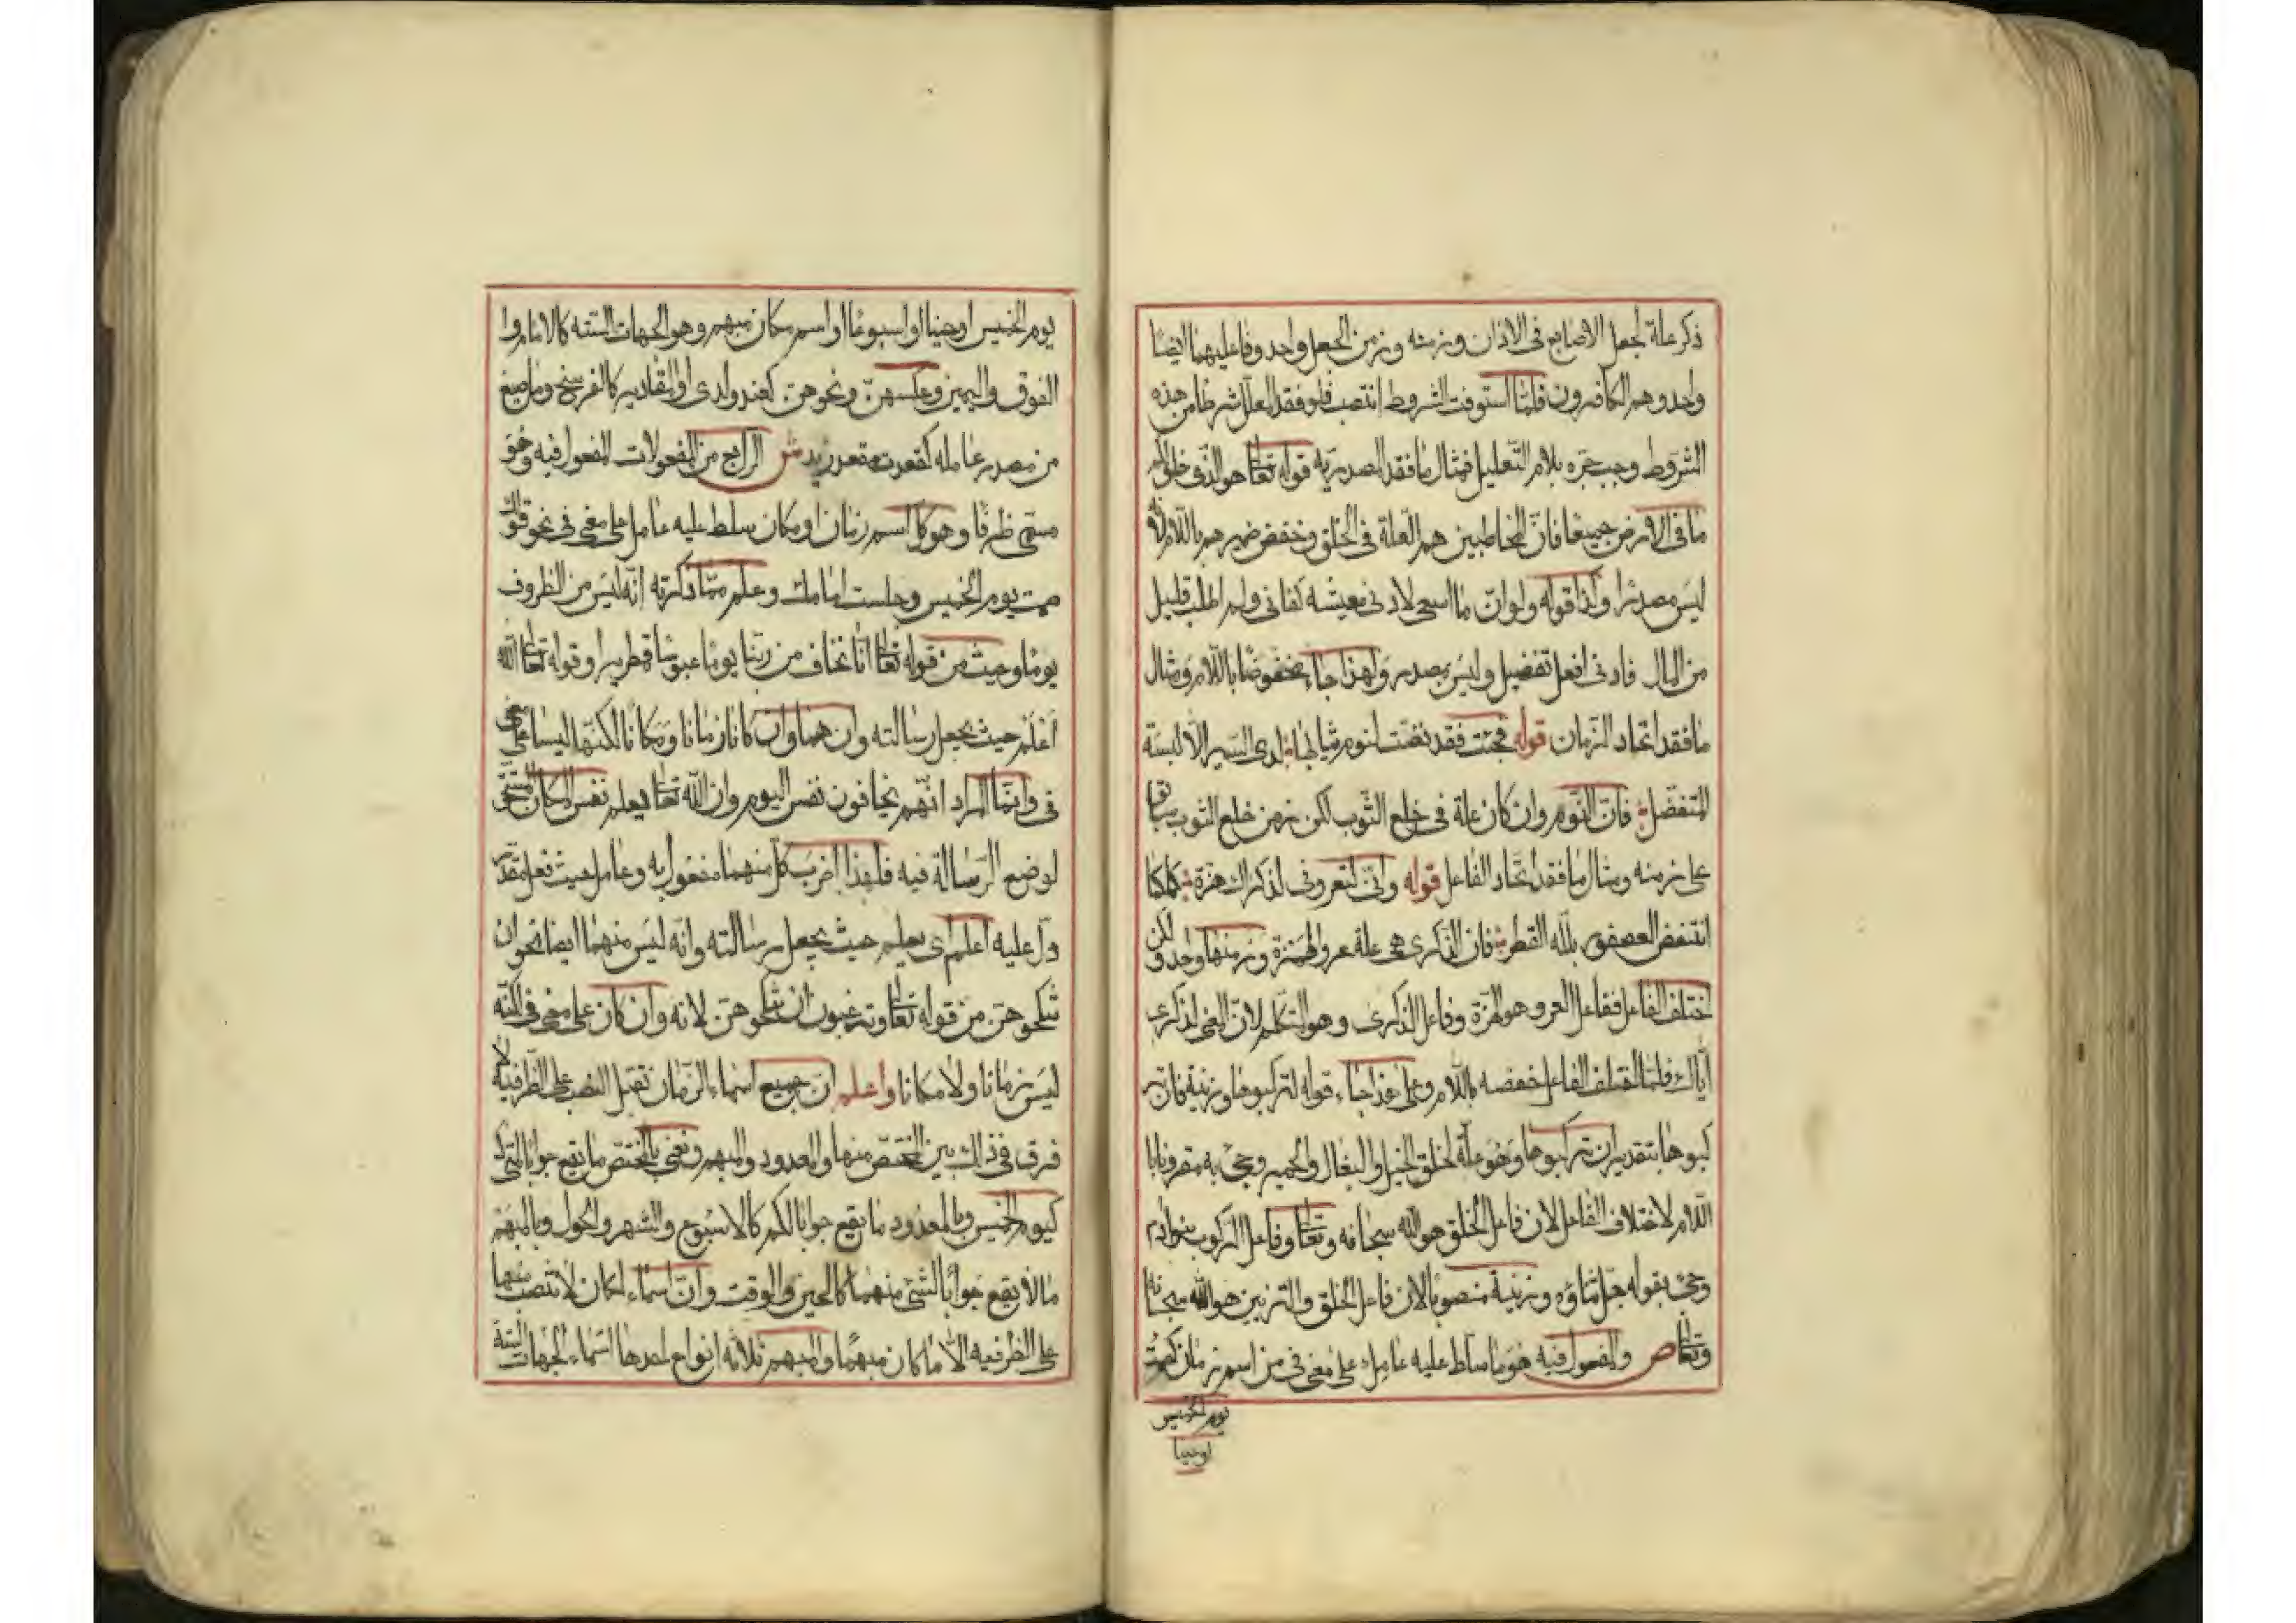 ذكر علة لجعل الاصابع فى الاذان وزمنه وزمن الجعل واحد وفاعليهما ايضا
واحد وهم الكافرون فلما استوفت الشروط انتصب فلو فقد المعلل شرطا من هذه
الشروط وجب جره بلام التعليل فمثال ما فقد المصدرية قوله تعالى هو الذى خلق لكم
ما فى الارض جميعا فان المخاطبين هم العلة فى الخلق وخفض ضميرهم باللام لانه
ليس مصدرا وكذا قوله ولو ان ما اسعى لادنى معيشه كفانى ولم اطلب قليل
من المال فادنى افعل تفضيل وليس بمصدر ولهذا جاء مخفوضا باللام ومثال
ما فقد اتحاد الزمان قوله فجئت فقد نضت لنوم ثيابها لدى الستر الا لبسة
المتفضل فان النوم وان كان علة فى خلع الثوب لكن زمن خلع الثوب سابق
على زمنه ومثال ما فقد اتحاد الفاعل قوله وانى لتعرونى لذكراك هزة كما
انتفض العصفور بلله القطر فان الذكرى هى علة عرو الهزة وزمنهما واحد ولكن
اختلف الفاعل ففاعل العرو هو الهزة وفاعل الذكرى وهو المتكلم لان المعنى لذكرى
اياك فلما اختلف الفاعل خفضه باللام وعلى هذا جاء قوله لتركبوها وزينة فان تر
كبوها بتقدير ان تركبوها وهو علة لخلق الخيل والبغال والحمير وجئ به مقرونا با
اللام لاختلاف الفاعل لان فاعل الخلق هو الله سبحانه وتعالى وفاعل الركوب بنو ادم
وجئ بقوله جل ثناؤه وزينة منصوبا لان فاعل الخلق والتزيين هو الله سبحانه
وتعالى ص والمفعول فيه هو ما سلط عليه عامل على معنى فى من اسم زمان كصمت
يوم الخميس
او حينا
يوم الخميس او حينا او اسبوعا او اسم مكان مبهم وهو الجهات الستة كالامام وا
الفوق واليمين وعكسهن ونحوهن كعند ولدى او المقادير كالفرسخ وما صيغ
من مصدر عامله كقعدت مقعد زيد ش الرابع من المفعولات المفعول فيه وهو
مسمى ظرفا وهو كل اسم زمان او مكان سلط عليه عامل على معنى فى نحو قولك
صمت يوم الخميس وجلست امامك وعلم مما ذكرته انه ليس من الظروف
يوما وحيث من قوله تعالى انا نخاف من ربنا يوما عبوسا قمطريرا وقوله تعالى الله
اعلم حيث يجعل رسالته وان هما وان كانا زمانا ومكانا لكنهما ليسا على معنى
فى وانما المراد انهم يخافون نفس اليوم وان الله تعالى يعلم نفس المكان المستحق
لوضع الرسالة فيه فلهذا اعرب كل منهما مفعول به وعامل حيث فعل مقدر
دل عليه اعلم اى يعلم حيث يجعل رسالته وانه ليس منهما ايضا نحو ان
تنكحوهن من قوله تعالى وترغبون ان تنكحوهن لانه وان كان على معنى فى لكنه
ليس زمانا ولا مكانا واعلم ان جميع اسماء الزمان تقبل النصب على الظرفية لا
فرق فى ذلك بين المختص منها والمعدود والمبهم ونعنى بالمختص ما يقع جوابا لمتى
كيوم الخميس وبالمعدود ما يقع جوابا لكم كالاسبوع والشهر والحول وبالمبهم
ما لا يقع جوابا لشئ منهما كالحين والوقت وان اسماء المكان لا تنتصب منها
على الظرفية الا ما كان مبهما والمبهم ثلاثه انواع احدها اسماء الجهات الستة